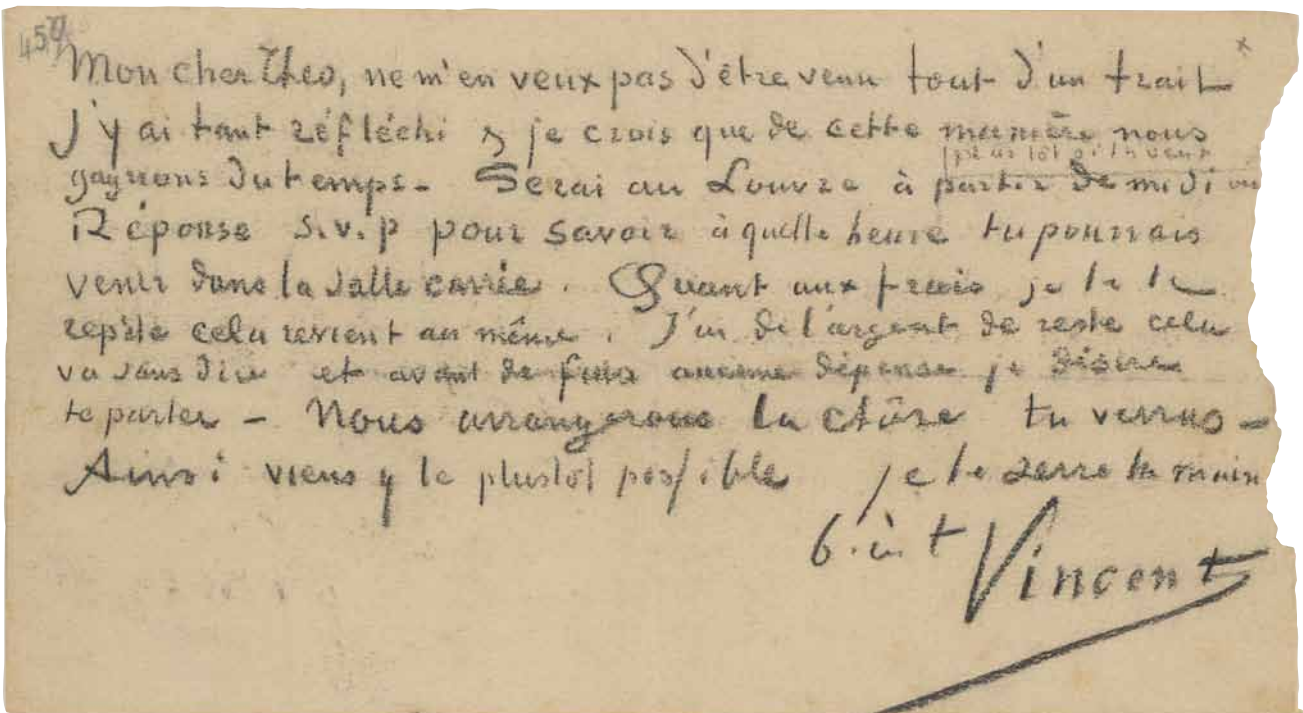 Mon cher Theo, ne m'en veux pas d'être venu tout d'un trait
J'y ai tant réfléchi & je crois que de cette manière nous
plus tôt si tu veux
gagnons du temps - Serai au Louvre à partir de midi ou
Réponse s.v.p pour savoir à quelle heure tu pourrais
venir dans la salle carrée. Quant aux frais je te le
repète cela revient au même. J'ai de l'argent de reste cela
va sans dire et avant de faire aucune dépense je désire
te parler - Nous arrangerons la chôse tu verras -
Ainsi viens y le plustôt possible je te serre la main
b. à t
Vincent